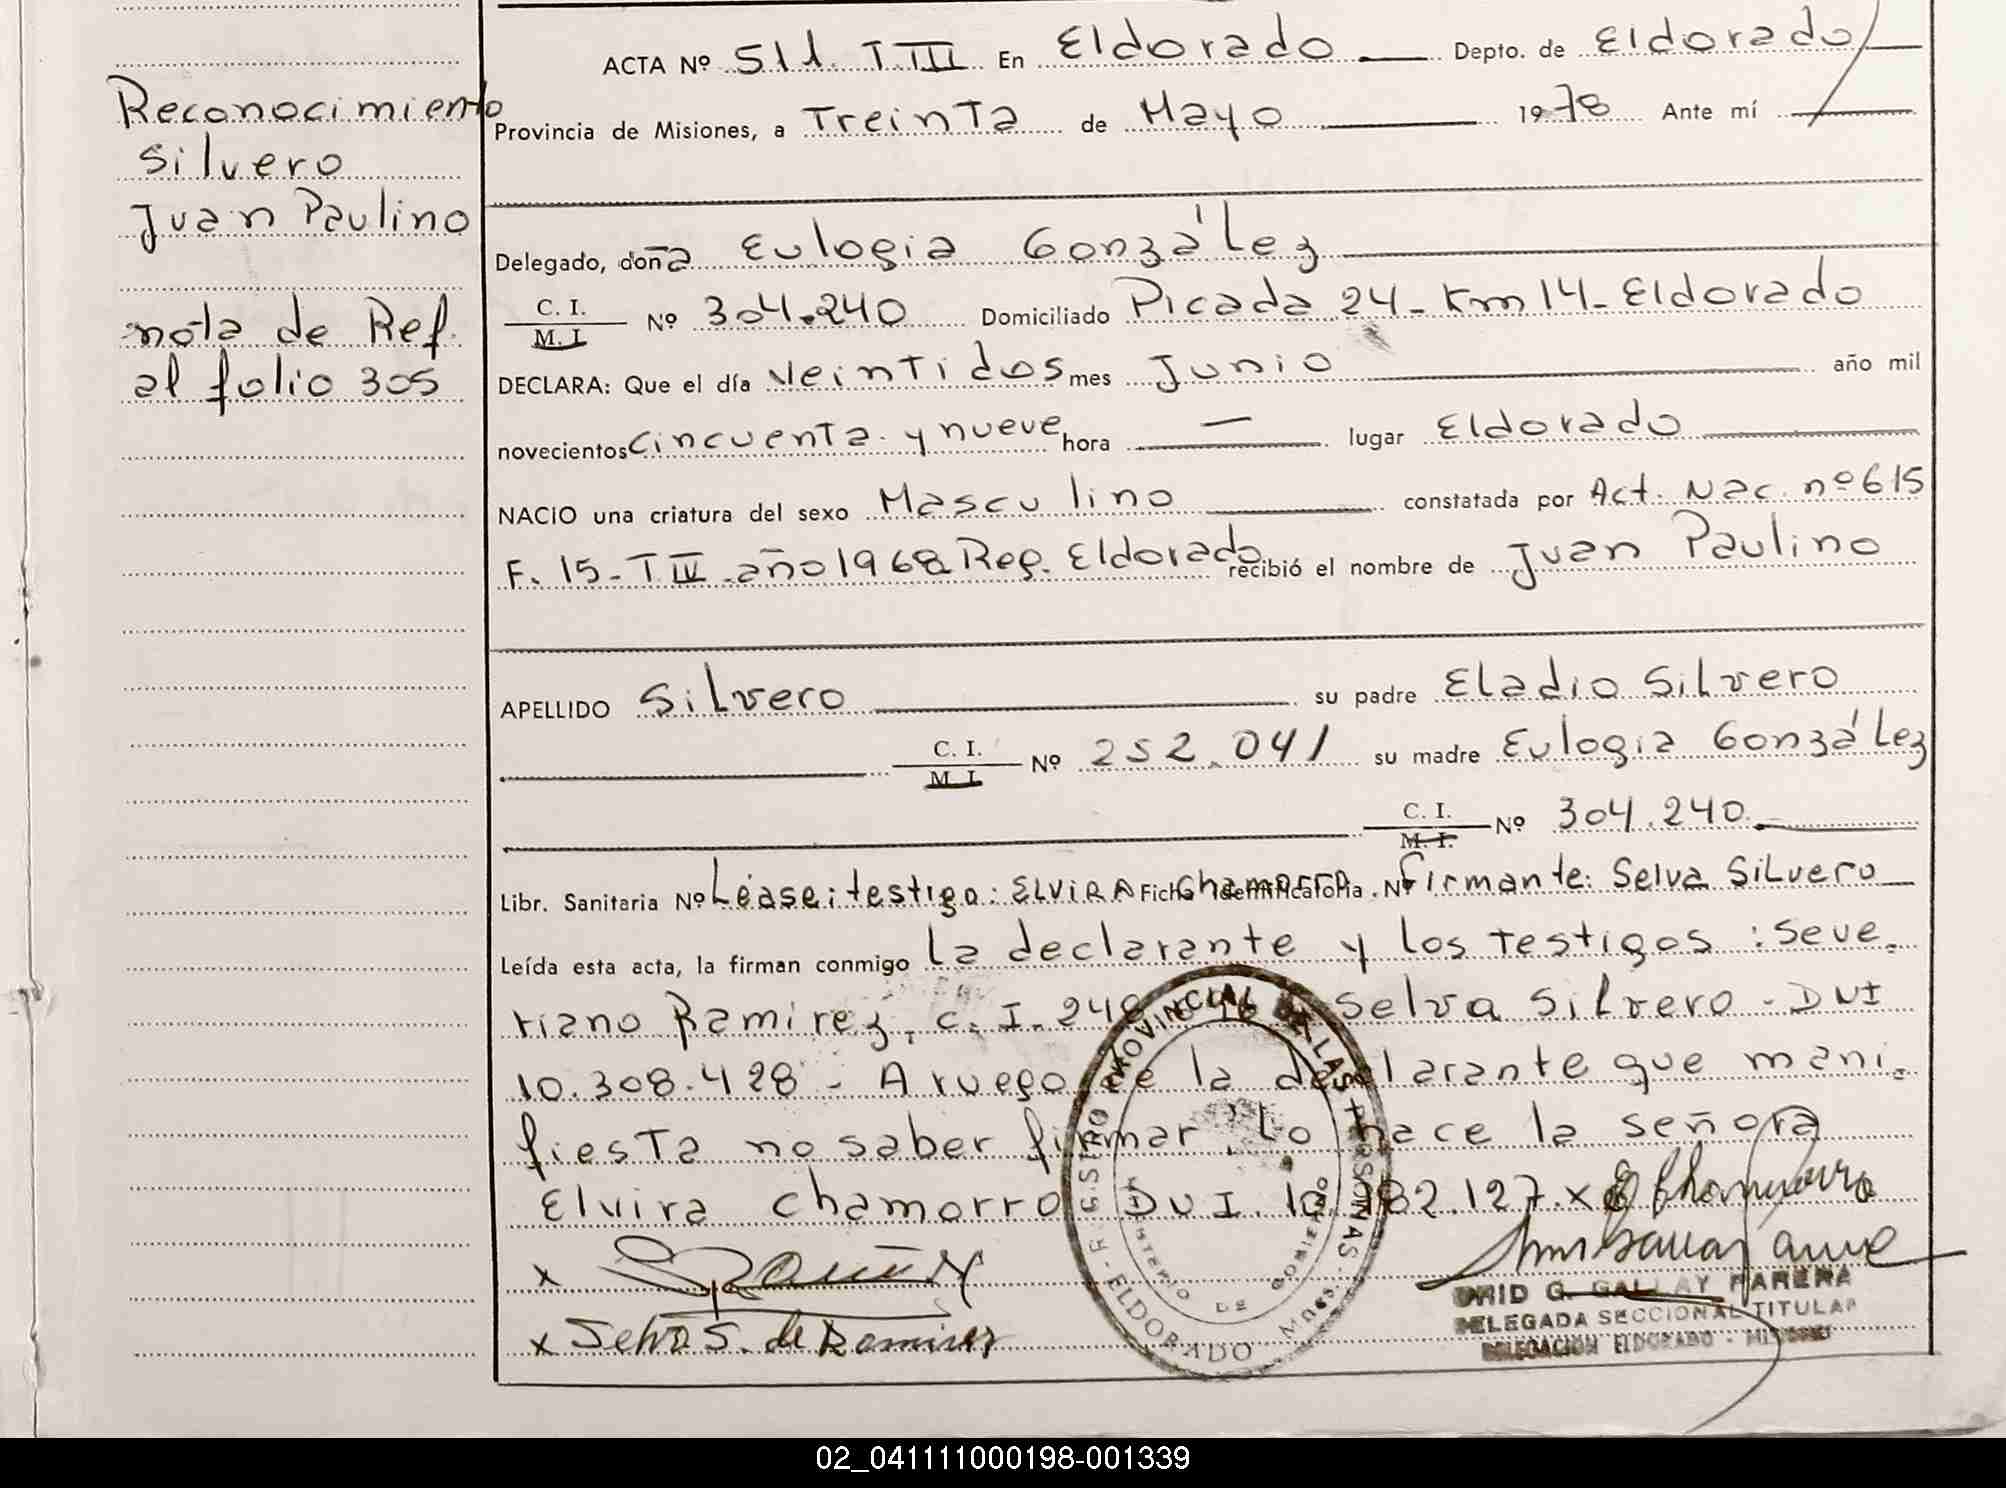 Reconocimiento
Silvero
Juan Paulino
nota de Ref.
al folio 305
ACTA Nº 511 T III En Eldorado Depto. de Eldorado
Provincia de Misiones, a Treinta de Mayo 1978 Ante mí
Delegado, doña Eulogia González
C. I.
M. I. Nº 304.240 Domiciliado Picada 24 - Km 14 - Eldorado
DECLARA: Que el día Veintidos mes Junio año mil
novecientos cincuenta y nueve hora — lugar Eldorado
NACIO una criatura del sexo Masculino constatada por Act. Nac. nº 615
F. 15 - T IV año 1968 Reg. Eldorado recibió el nombre de Juan Paulino
APELLIDO Silvero su padre Eladio Silvero
C. I.
M. I. Nº 252.041 su madre Eulogia González
C. I.
M. I. Nº 304.240
Libr. Sanitaria Nº Léase: testigo: ELVIRA Chamorro Ficha Identificatoria Nº Firmante: Selva Silvero
Leída esta acta, la firman conmigo la declarante y los testigos: Seve-
riano Ramirez, C. I. Selva Silvero - DUI
10.308.428 - A ruego de la declarante que mani-
fiesta no saber firmar, lo hace la señora
Elvira Chamorro DUI. x E Chamorro
x
x Selva S. de Ramirez
G. GALLAY PARERA
DELEGADA SECCIONAL TITULAR
DELEGACION ELDORADO - MISIONES
REGISTRO PROVINCIAL DE LAS PERSONAS
MINISTERIO DE GOBIERNO
ELDORADO
02_041111000198-001339